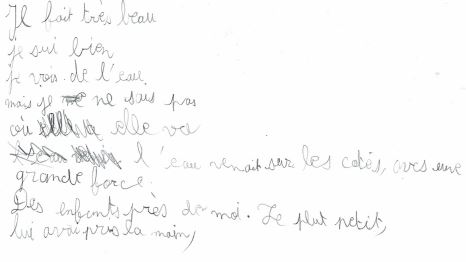 Il fait très beau
je sui bien
je vois de l'eau
mais je ne sais pas
où elle va
l'eau venait sur les cotés, avec une
grande force.
Des enfants près de moi. Le plut petit,
lui avai pris la main,